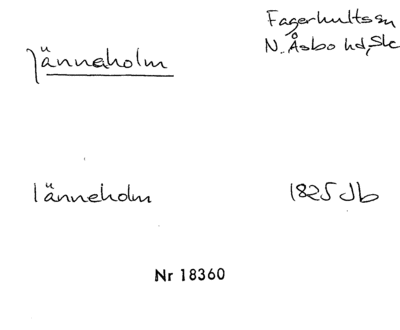 Fagerhultssn
Jänneholm N. Åsbo hd, Sk
länneholm 1825 Jb
Nr 18360